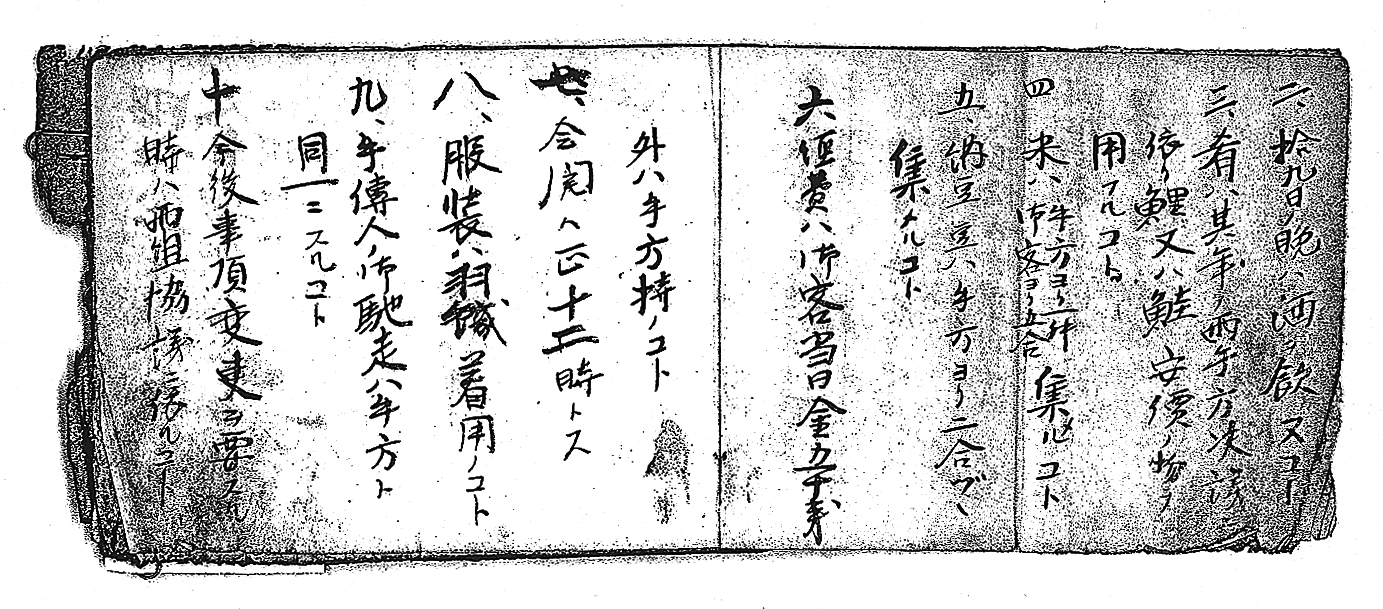 二、拾九日ノ晩ハ酒ヲ飲ヌコト
三、肴ハ其年ノ両年方決議
依リ鯉又ハ鮭安價ノ物ヲ
用フルコト
四 米ハ年方ヨリ一升 集ルコト
御客ヨリ五合
五、納豆豆ハ年方ヨリ二合ヅヽ
集メルコト
六 費ハ御客当日金五十銭
外ハ年方持ノコト
七、会関ハ正十二時トス
八、服装ハ羽織着用ノコト
九、年傳人ノ御馳走ハ年方ト
同一ニスルコト
十 今後事項変更ヲ要スル
時ハ両組協議ニ依ルコト